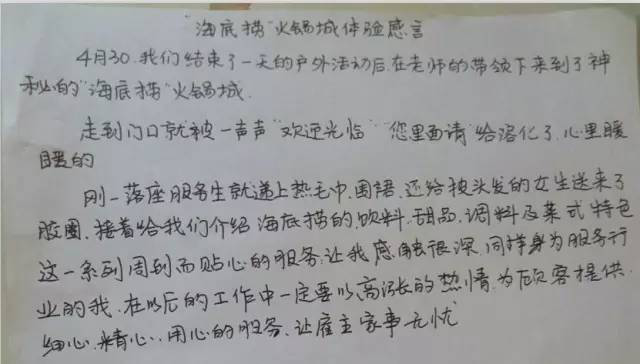 "海底捞"火锅城体验感言
4月30.我们结束了一天的户外活动后.在老师的带领下来到了神
秘的"海底捞"火锅城.
走到门口就被一声声"欢迎光临""您里面请"给溶化了.心里暖
暖的
刚一落座服务生就递上热毛巾.围裙.还给披头发的女生送来了
胶圈.接着给我们介绍海底捞的.饮料.甜品.调料及菜式特色
这一系列周到而贴心的服务.让我感触很深.同样身为服务行
业的我.在以后的工作中一定要以高涨的热情.为顾客提供.
细心.精心.用心的服务.让雇主家事无忧